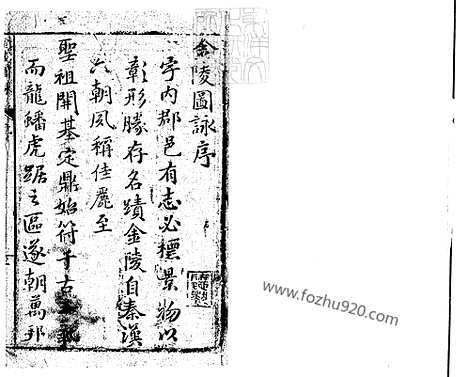 金陵圖詠序
宇内郡邑有志必標景物以
彰形勝存名蹟金陵自秦漢
六朝夙稱佳麗至
聖祖開基定鼎始符千古王氣
而龍蟠虎踞之區遂朝萬邦
www.fozhu920.com